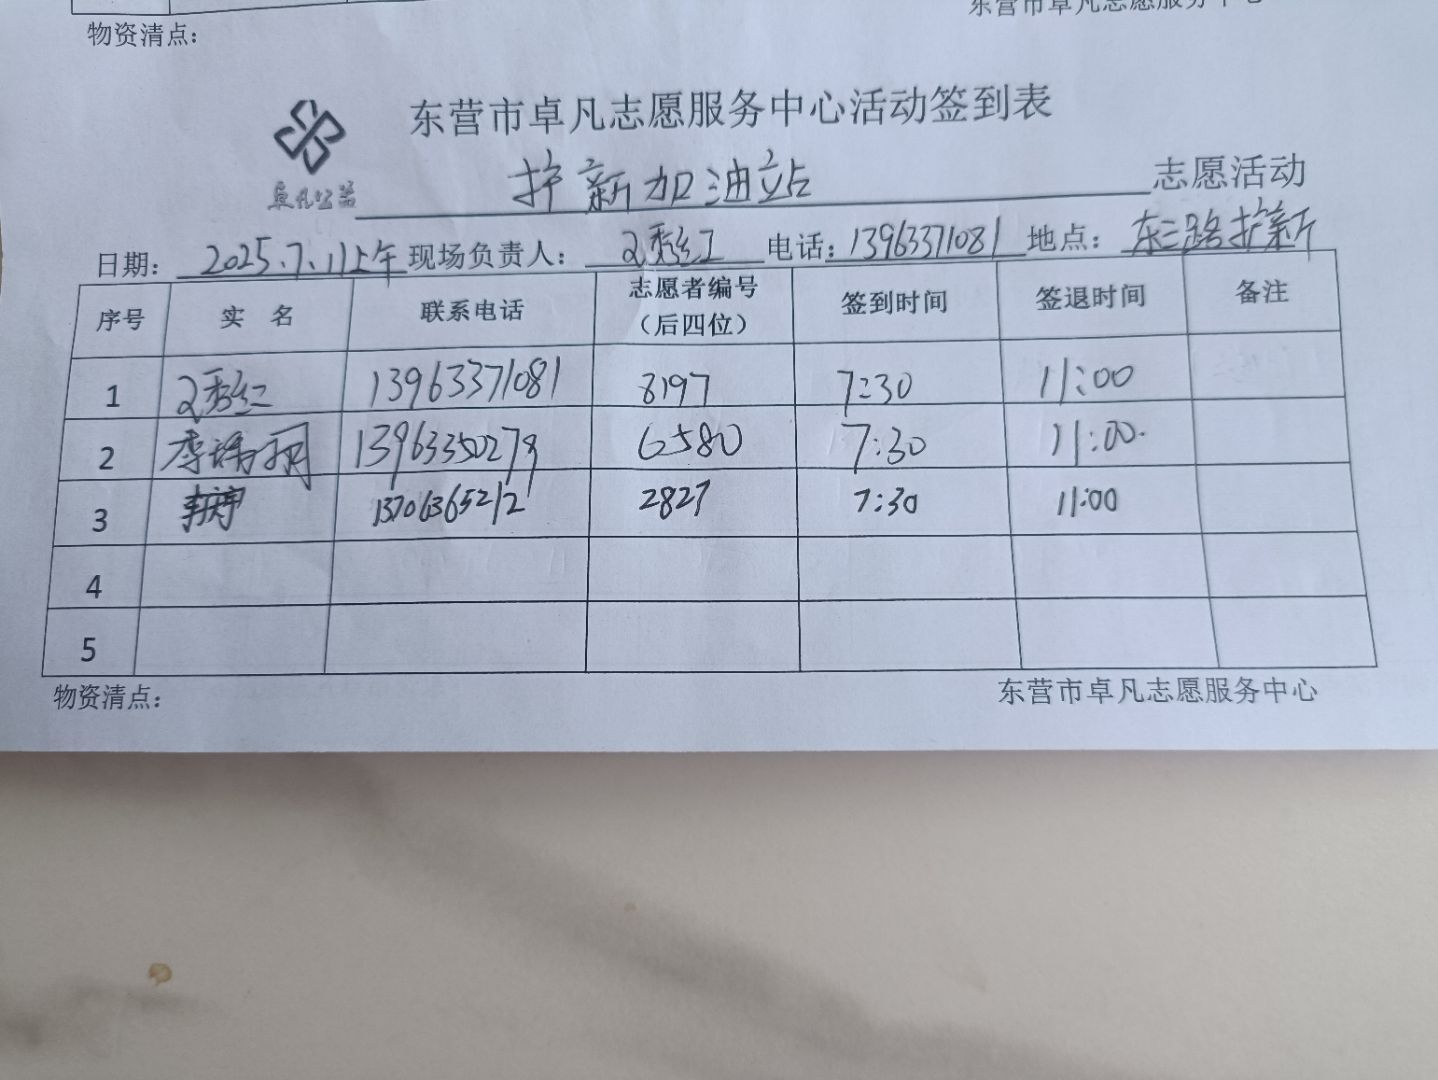 东营市卓凡志愿服务中心
物资清点：
东营市卓凡志愿服务中心活动签到表
卓凡公益
护新加油站 志愿活动
日期： 2025.7.11上午 现场负责人： 电话：13963371081 地点： 东三路护新
序号 实 名 联系电话 志愿者编号（后四位） 签到时间 签退时间 备注
1 13963371081 8197 7:30 11:00
2 李 丽 13963350279 6580 7:30 11:00.
3 李 13706365212 2827 7:30 11:00
4
5
物资清点： 东营市卓凡志愿服务中心